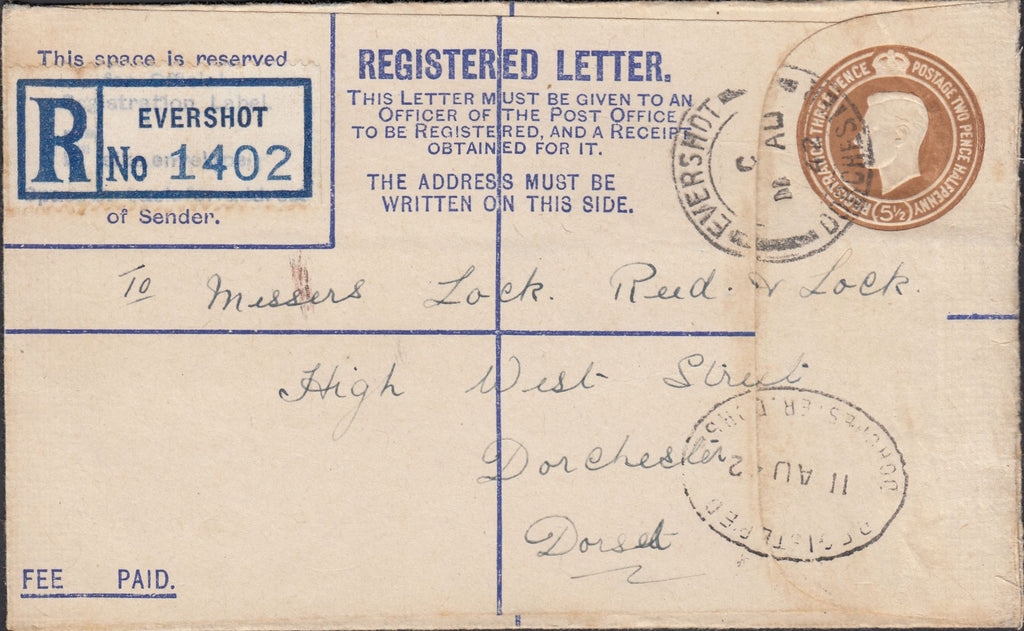 This space is reserved
R
EVERSHOT
No 1402
of Sender.
REGISTERED LETTER.
THIS LETTER MUST BE GIVEN TO AN
OFFICER OF THE POST OFFICE
TO BE REGISTERED, AND A RECEIPT
OBTAINED FOR IT.
THE ADDRESS MUST BE
WRITTEN ON THIS SIDE.
EVERSHOT
AU
42
DORCHESTER
POSTAGE TWO PENCE HALFPENNY
REGISTRATION THREE PENCE
(5½)
To Messers Lock. Reed. & Lock.
High West Street
Dorchester
Dorset
REGISTERED
DORCHESTER. DORSET
11 AU 42
FEE PAID.